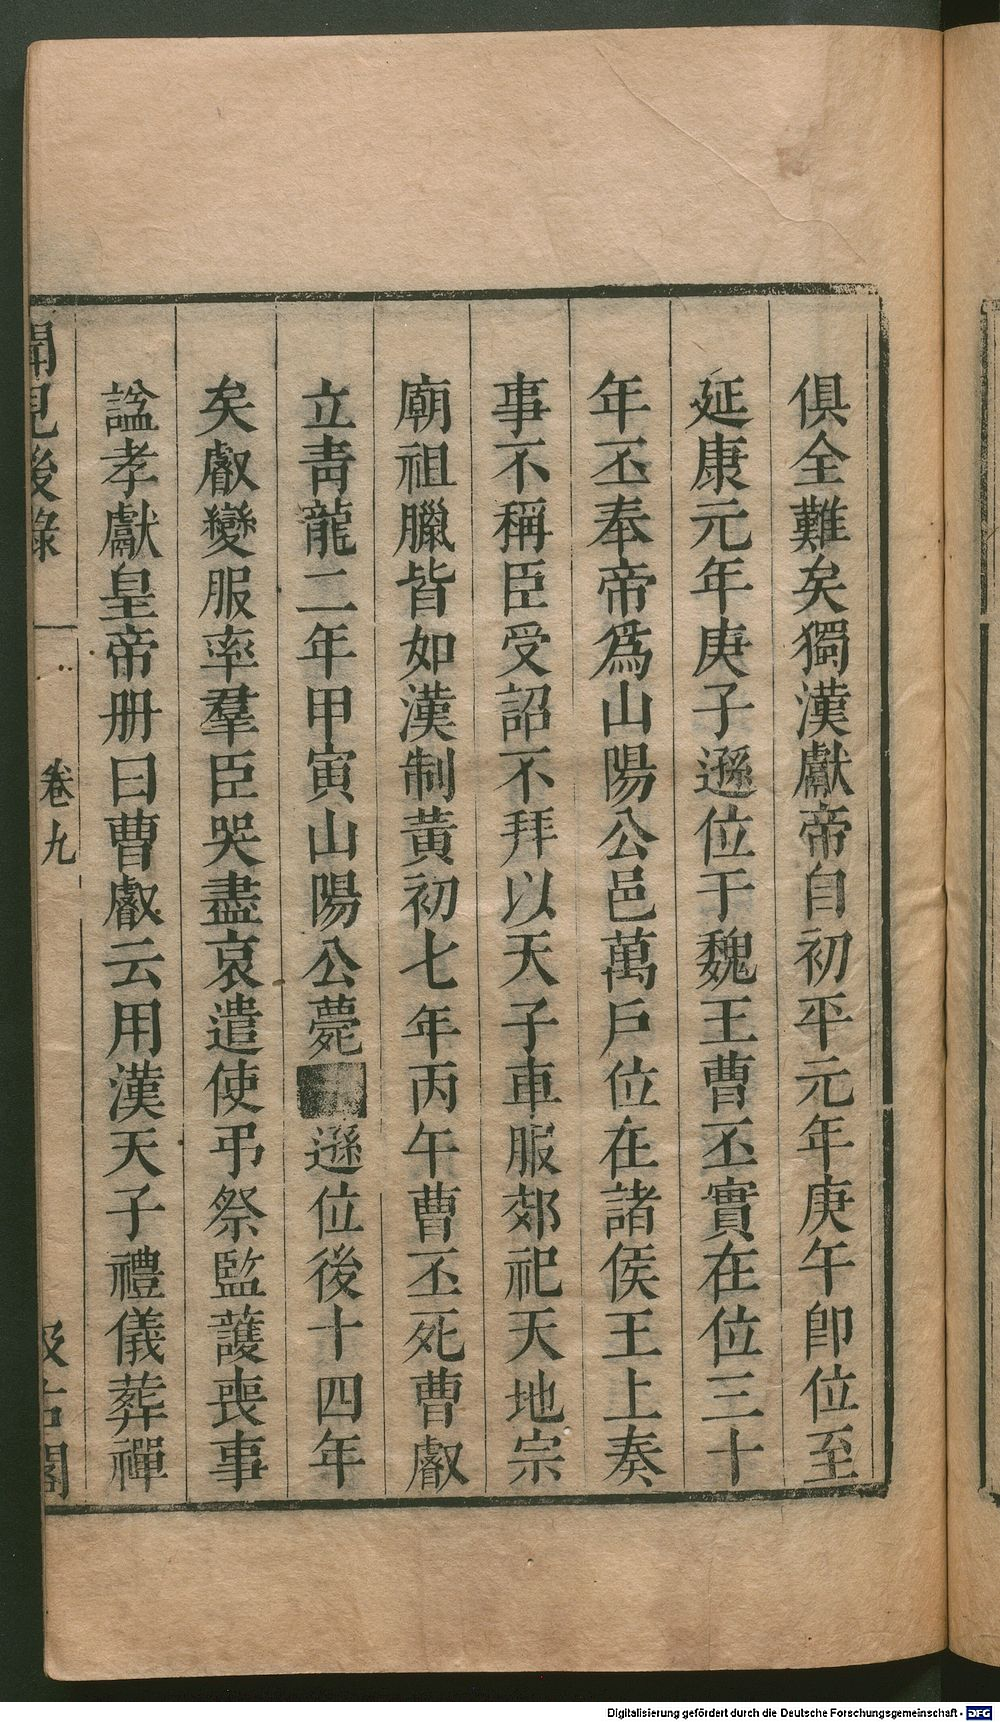 俱全難矣獨漢獻帝自初平元年庚午卽位至
延康元年庚子遜位于魏王曹丕實在位三十
年丕奉帝爲山陽公邑萬戶位在諸侯王上奏
事不稱臣受詔不拜以天子車服郊祀天地宗
廟祖臘皆如漢制黃初七年丙午曹丕死曹叡
立靑龍二年甲寅山陽公薨遜位後十四年
矣叡變服率羣臣哭盡哀遣使弔祭監護喪事
謚孝獻皇帝册曰曹叡云用漢天子禮儀葬禪
聞見後錄
卷九
汲古閣
Digitalisierung gefördert durch die Deutsche Forschungsgemeinschaft - DFG